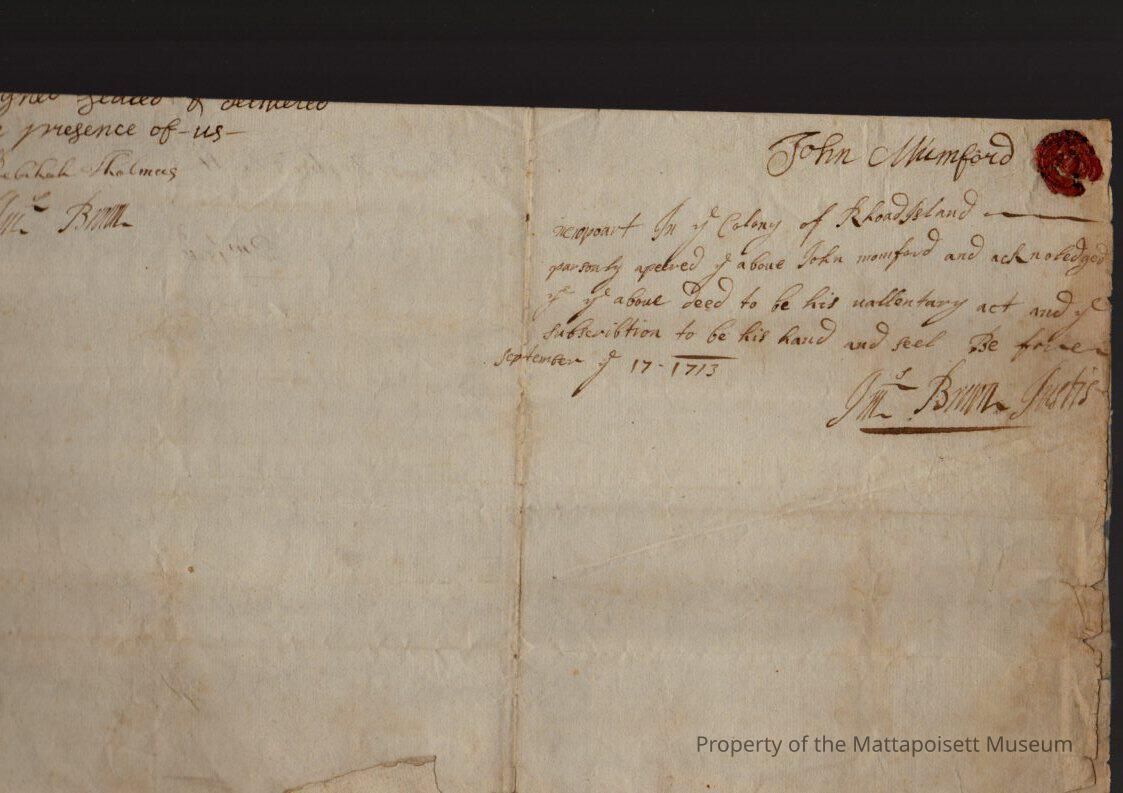 sealed & delivered
presence of-us-
Tholmus
Jnᵒ Brown
John Mumford
newpoart In yᵉ Colony of RhoadIsland
parsonly apered yᵉ above John momford and acknoledged
yᵗ yᵉ above deed to be his vallentary act and yᵉ
subscribtion to be his hand and seel Be fore
september yᵉ 17-1713
Jnᵒ Brown Justis
Property of the Mattapoisett Museum